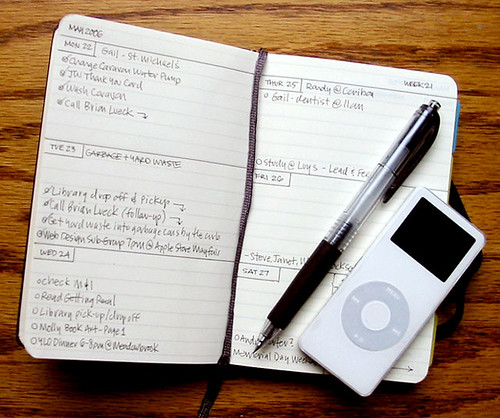 MAY 2006
MON 22 Gail - St. Michael's
Change Caravan Water Pump
JW Thank You Card
Wash Caravan
Call Brian Lueck
TUE 23 GARBAGE + YARD WASTE
Library drop off & pickup
Call Brian Lueck (follow-up)
Get yard waste into garbage cans by the curb
Web Design Sub-Group 7pm @ Apple Store Mayfair
WED 24
check
Read Getting Real
Library pick-up/drop off
Molly Book Art - Page 1
YLO Dinner 6-8pm @ Meadowbrook
WEEK 21
THUR 25 Randy @ Caribou
Gail - dentist @ 11am
Study @ Luy's - Lead &
FRI 26
- Steve, Janet,
SAT 27
Memorial Day Week
MENU